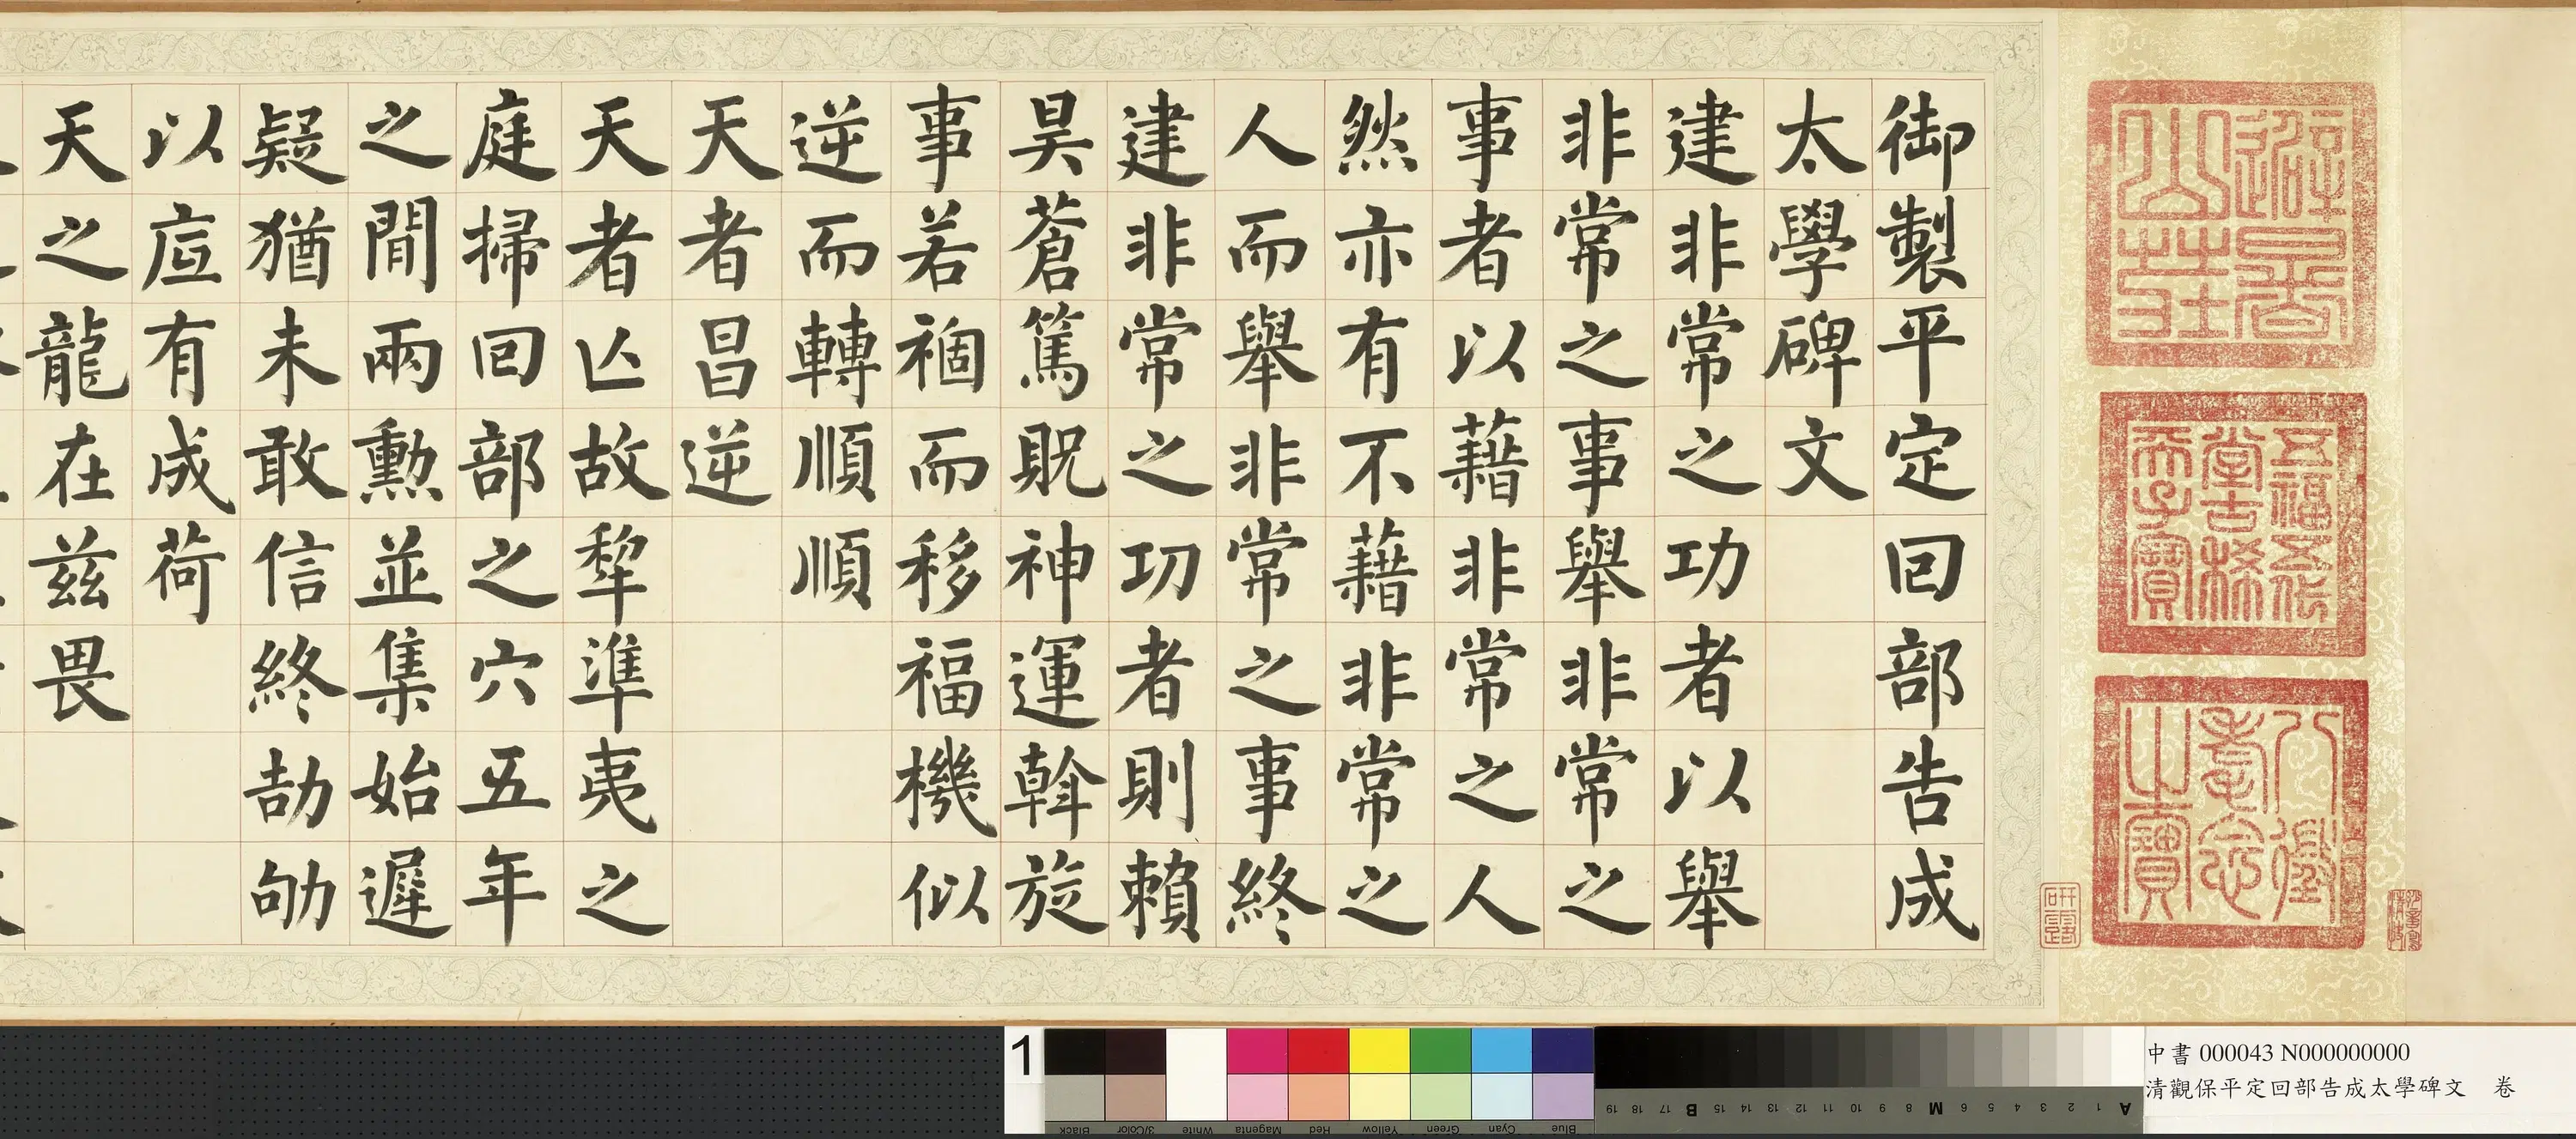 避暑山莊
五福五代堂古稀天子寶
八徵耄念之寶
研露
御製平定回部告成
太學碑文
建非常之功者以舉
非常之事舉非常之
事者以藉非常之人
然亦有不藉非常之
人而舉非常之事終
建非常之功者則賴
昊蒼篤貺神運斡旋
事若禍而移福機似
逆而轉順順
天者昌逆
天者亾故犂準夷之
庭掃回部之穴五年
之間兩勳並集始遲
疑猶未敢信終劼劬
以底有成荷
天之龍在茲畏
1
Black 3/Color White Magenta Red Yellow Green Cyan Blue
19 18 17 B 15 14 13 12 11 10 9 8 M 6 5 4 3 2 1 A
中書 000043 N000000000
清觀保平定回部告成太學碑文 卷